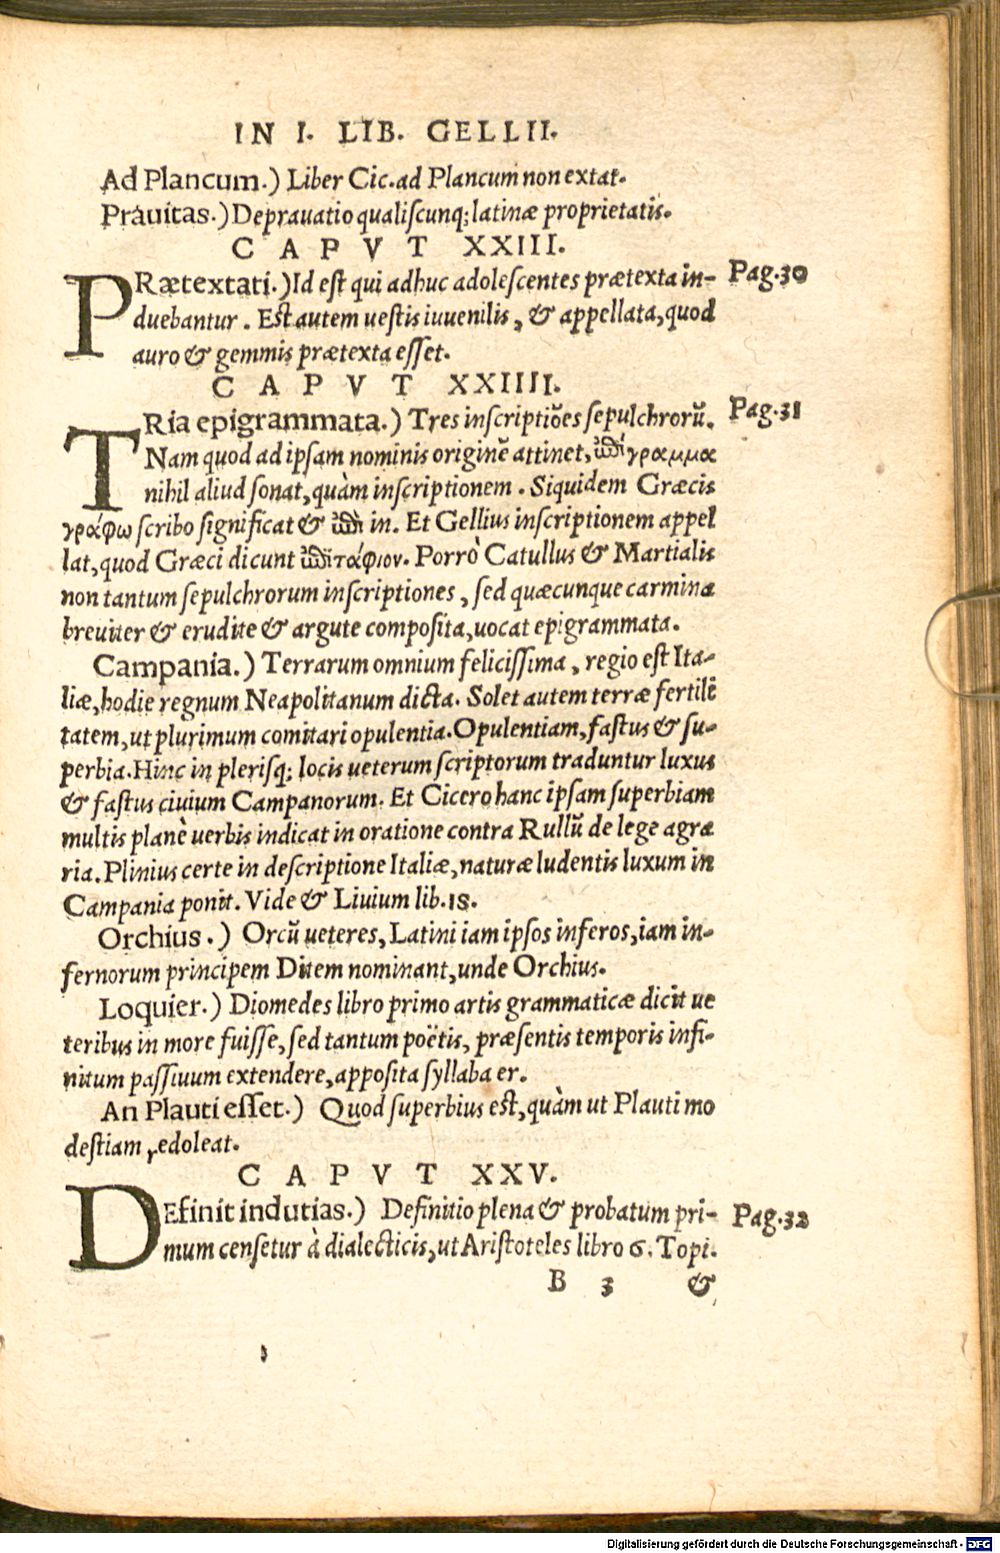 IN I. LIB. GELLII.
Ad Plancum.) Liber Cic. ad Plancum non extat.
Prauitas.) Deprauatio qualiscunq; latinæ proprietatis.
CAPVT XXIII.
PRætextati.) Id est qui adhuc adolescentes prætexta in- Pag.30
duebantur. Est autem uestis iuuenilis, & appellata, quod
auro & gemmis prætexta esset.
CAPVT XXIIII.
TRia epigrammata.) Tres inscriptiões sepulchrorũ. Pag.31
Nam quod ad ipsam nominis originẽ attinet, ἐπίγραμμα
nihil aliud sonat, quàm inscriptionem. Siquidem Græcis
γράφω scribo significat & ἐπὶ in. Et Gellius inscriptionem appel
lat, quod Græci dicunt ἐπιτάφιον. Porrò Catullus & Martialis
non tantum sepulchrorum inscriptiones, sed quæcunque carmina
breuiter & erudite & argute composita, uocat epigrammata.
Campania.) Terrarum omnium felicissima, regio est Ita-
liæ, hodie regnum Neapolitanum dicta. Solet autem terræ fertili
tatem, ut plurimum comitari opulentia. Opulentiam, fastus & su-
perbia. Hinc in plerisq; locis ueterum scriptorum traduntur luxus
& fastus ciuium Campanorum. Et Cicero hanc ipsam superbiam
multis planè uerbis indicat in oratione contra Rullũ de lege agra
ria. Plinius certe in descriptione Italiæ, naturæ ludentis luxum in
Campania ponit. Vide & Liuium lib.18.
Orchius.) Orcũ ueteres, Latini iam ipsos inferos, iam in-
fernorum principem Ditem nominant, unde Orchius.
Loquier.) Diomedes libro primo artis grammaticæ dicit ue
teribus in more fuisse, sed tantum poëtis, præsentis temporis infi-
nitum passiuum extendere, apposita syllaba er.
An Plauti esset.) Quod superbius est, quàm ut Plauti mo
destiam redoleat.
CAPVT XXV.
DEfinit indutias.) Definitio plena & probatum pri- Pag.32
mum censetur à dialecticis, ut Aristoteles libro 6. Topi.
B 3 &
Digitalisierung gefördert durch die Deutsche Forschungsgemeinschaft - DFG